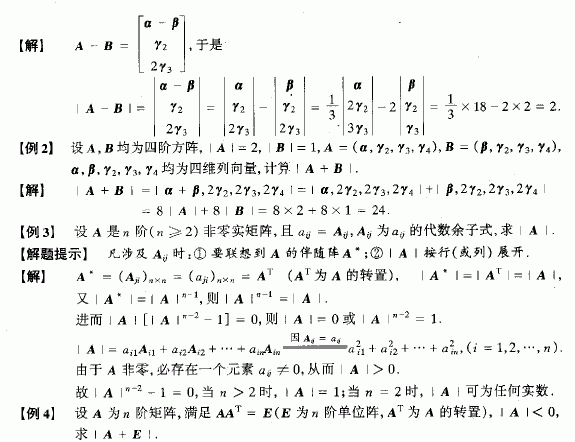 【解】 A - B = [α - β γ₂ 2γ₃], 于是
|A - B| = |α - β γ₂ 2γ₃| = |α γ₂ 2γ₃| - |β γ₂ 2γ₃| = 1/3 |α 2γ₂ 3γ₃| - 2 |β γ₂ γ₃| = 1/3 × 18 - 2 × 2 = 2.
【例2】 设 A,B 均为四阶方阵, |A| = 2, |B| = 1, A = (α,γ₂,γ₃,γ₄), B = (β,γ₂,γ₃,γ₄),
α,β,γ₂,γ₃,γ₄ 均为四维列向量,计算 |A + B|.
【解】 |A + B| = |α + β,2γ₂,2γ₃,2γ₄| = |α,2γ₂,2γ₃,2γ₄| + |β,2γ₂,2γ₃,2γ₄|
= 8|A| + 8|B| = 8 × 2 + 8 × 1 = 24.
【例3】 设 A 是 n 阶(n ≥ 2) 非零实矩阵,且 aᵢⱼ = Aᵢⱼ, Aᵢⱼ 为 aᵢⱼ 的代数余子式,求 |A|.
【解题提示】 凡涉及 Aᵢⱼ 时:① 要联想到 A 的伴随阵 A*;② |A| 按行(或列) 展开.
【解】 A* = (Aⱼᵢ)ₙₓₙ = (aⱼᵢ)ₙₓₙ = Aᵀ (Aᵀ 为 A 的转置), |A*| = |Aᵀ| = |A|,
又 |A*| = |A|ⁿ⁻¹,则 |A|ⁿ⁻¹ = |A|.
进而 |A|[|A|ⁿ⁻² - 1] = 0,则 |A| = 0 或 |A|ⁿ⁻² = 1.
|A| = aᵢ₁Aᵢ₁ + aᵢ₂Aᵢ₂ + ⋯ + aᵢₙAᵢₙ =(因 Aᵢⱼ = aᵢⱼ)= a²ᵢ₁ + a²ᵢ₂ + ⋯ + a²ᵢₙ, (i = 1,2,⋯,n).
由于 A 非零,必存在一个元素 aᵢⱼ ≠ 0,从而 |A| > 0.
故 |A|ⁿ⁻² - 1 = 0,当 n > 2 时, |A| = 1;当 n = 2 时, |A| 可为任何实数.
【例4】 设 A 为 n 阶矩阵,满足 AAᵀ = E(E 为 n 阶单位阵,Aᵀ 为 A 的转置), |A| < 0,
求 |A + E|.